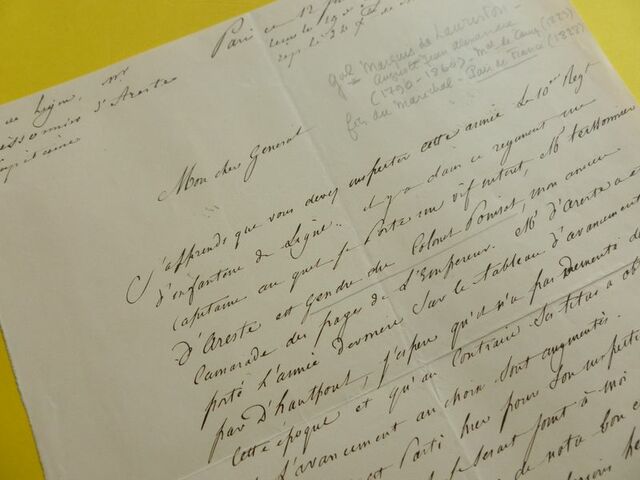 Paris ce 12
reçu le 19
rep. le 22
de Ligne
d'Areste
capitaine
Gal Marquis de Lauriston
Auguste Jean Alexandre
(1790-1860) - Mal de Camp (1823)
fils du Maréchal - Pair de France (1828)
Mon cher General
J'apprends que vous devez inspecter cette année le 10e Régt
d'infanterie de Ligne. il y a dans ce regiment un
Capitaine au quel je Porte un vif interet, Mr Teissonnier
D'Areste est Gendre du Colonel Poinsot, mon ancien
Camarade des pages de L'Empereur. Mr d'Areste a été
porté L'année derniere Sur le tableau d'avancement
par D'hautpoul, j'espere qu'il n'a pas dementi de
cette époque et qu'au contraire Ses titres a
L'avancement au choix Sont augmentés.
est Parti hier pour Son
Serait joint à moi
de